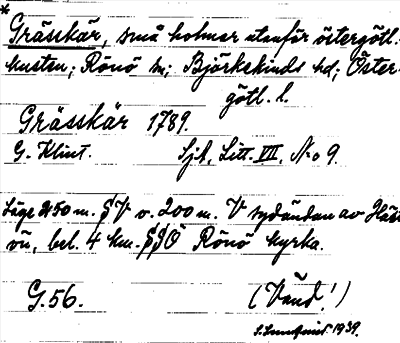 *
Grässkär, små holmar utanför östergötl.-
kusten; Rönö sn; Björkekinds hd; Öster-
götl. l.
Grässkär 1789.
G. Klint. Sjk, Litt. VII, No 9.
Läge 250 m. V o. 200 m. V sydändan av
ön, bel. 4 km. Rönö kyrka.
G. 56. (Vänd!)
1939.